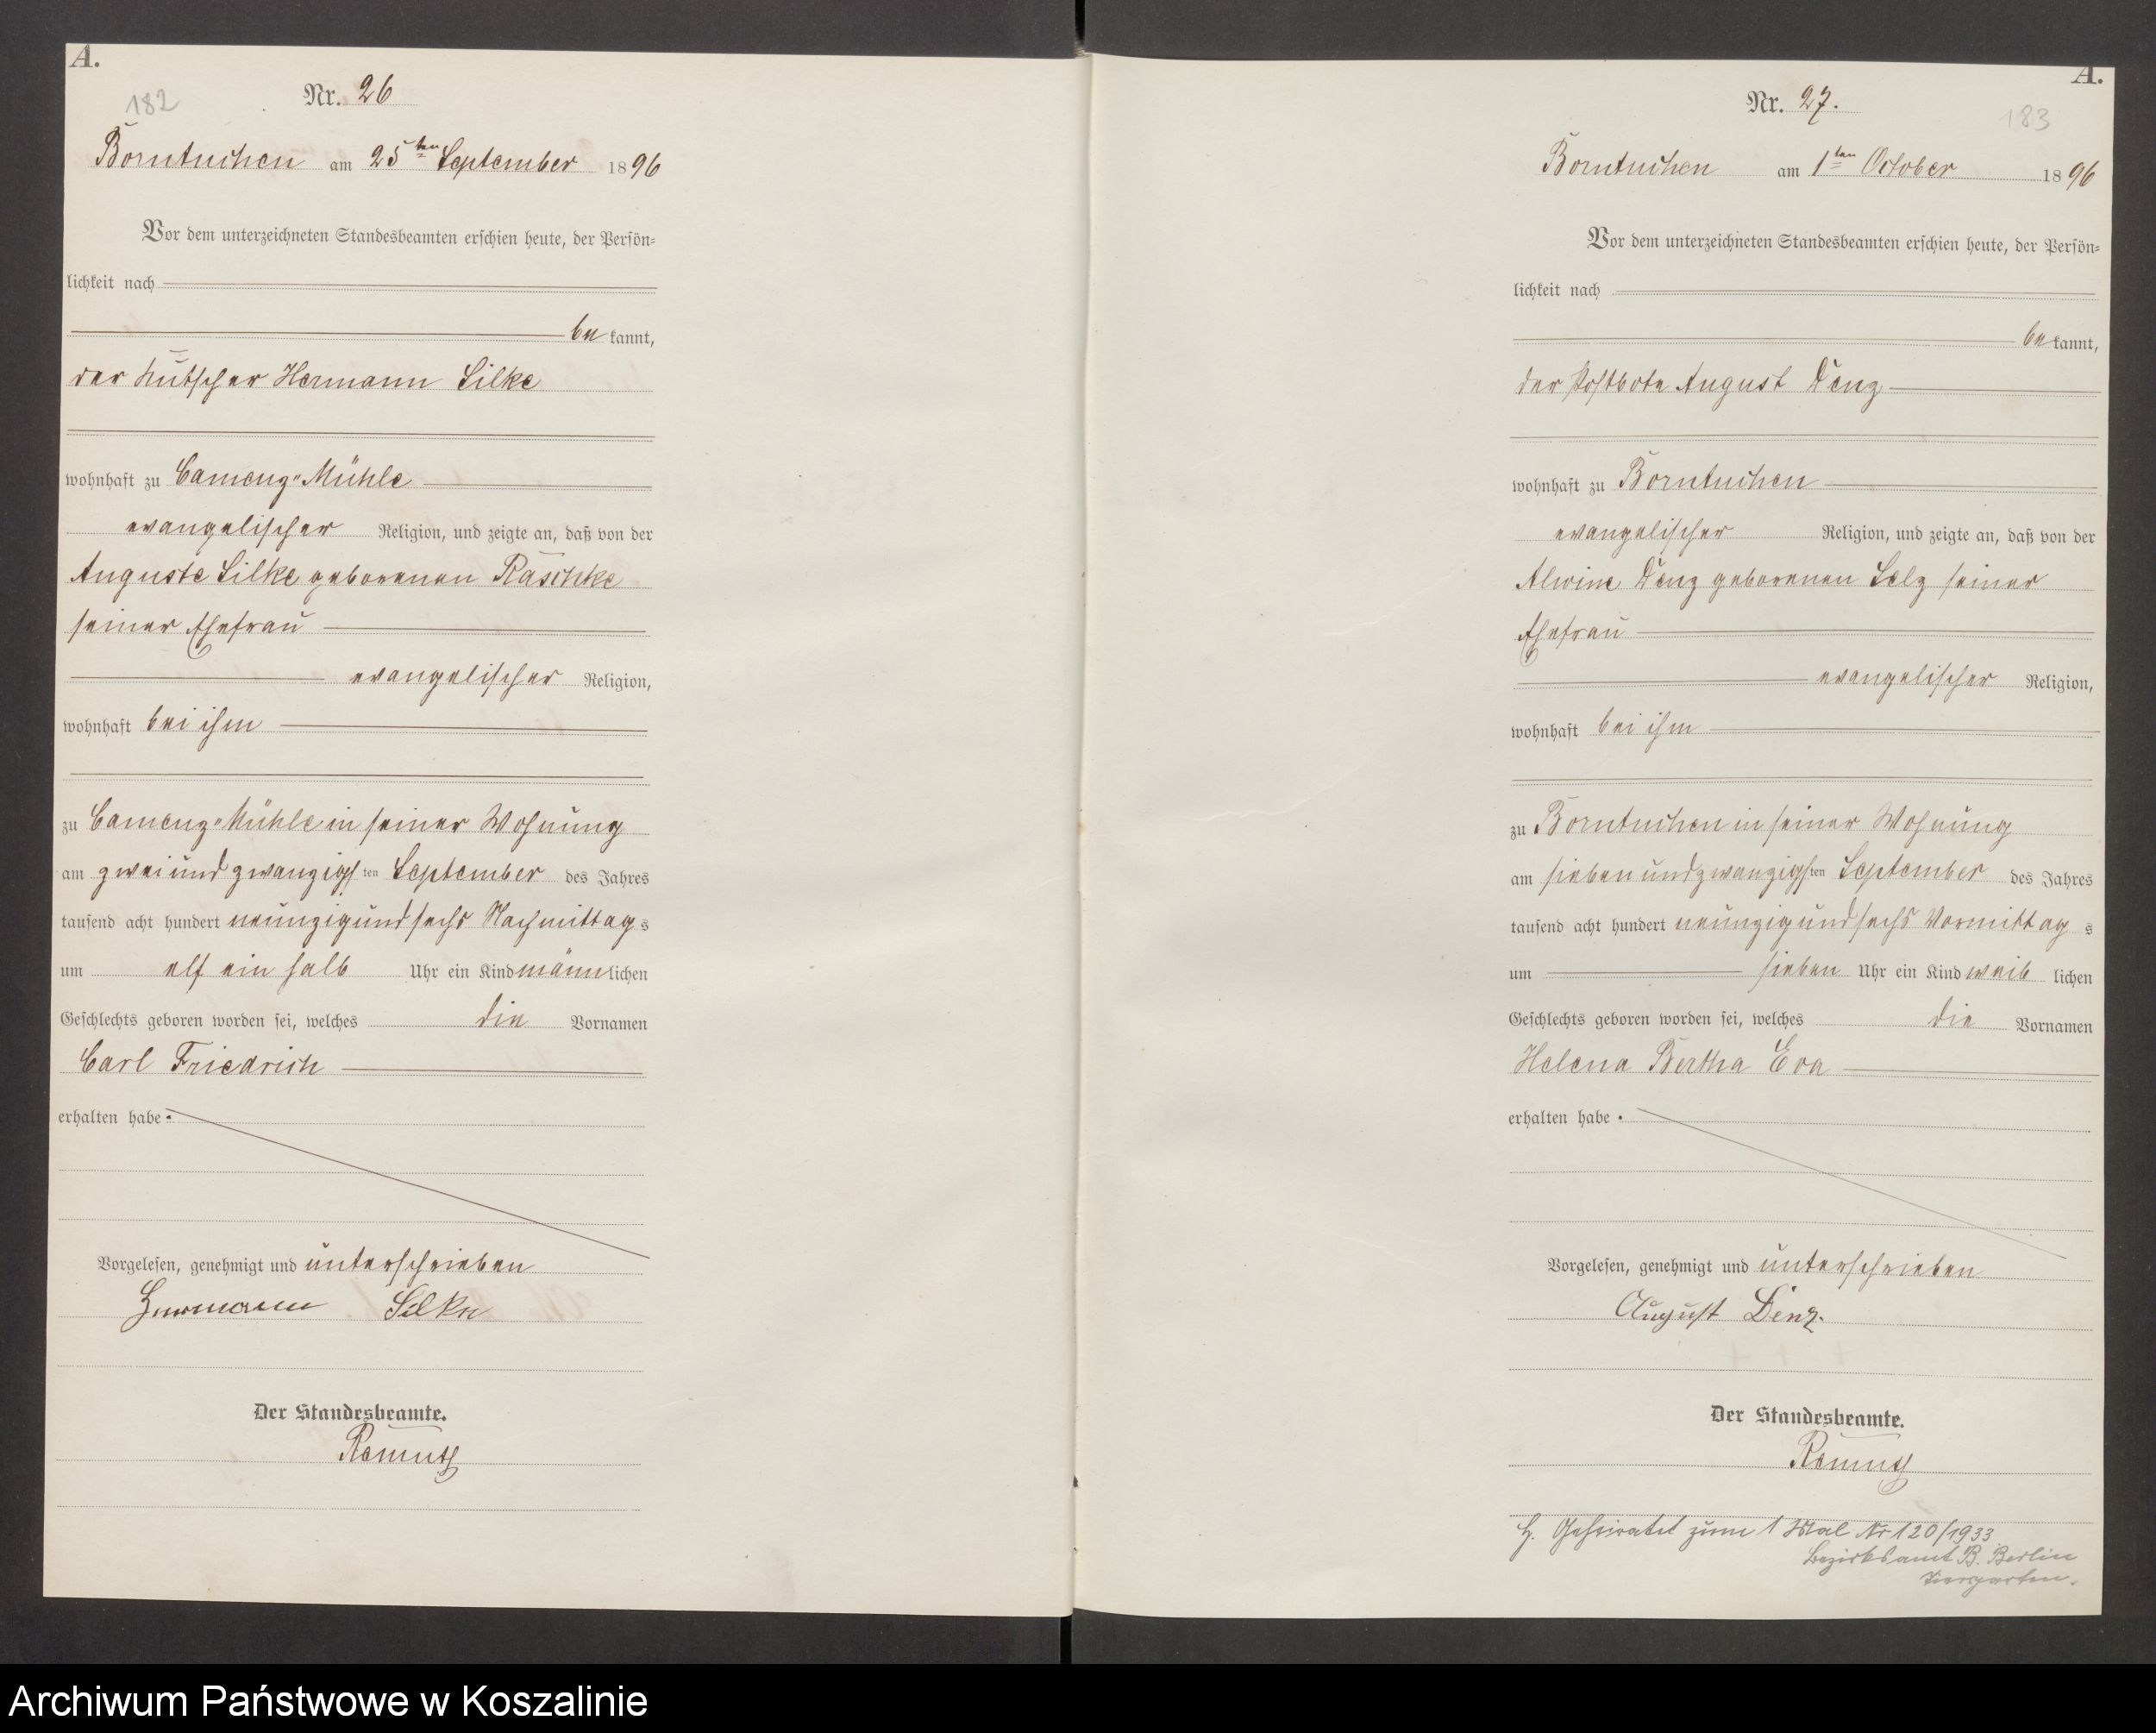 A.
182
Nr. 26
Borntuchen am 25ten September 1896
Vor dem unterzeichneten Standesbeamten erschien heute, der Persön=
lichkeit nach
be kannt,
der Kutscher Hermann Silke
wohnhaft zu Camenz-Mühle
evangelischer Religion, und zeigte an, daß von der
Auguste Silke geborenen Raschke
seiner Ehefrau
evangelischer Religion,
wohnhaft bei ihm
zu Camenz-Mühle in seiner Wohnung
am zwei und zwanzigsten September des Jahres
tausend acht hundert neunzig und sechs Nachmittags
um elf ein halb Uhr ein Kind männlichen
Geschlechts geboren worden sei, welches die Vornamen
Carl Friedrich
erhalten habe.
Vorgelesen, genehmigt und unterschrieben
Hermann Silke
Der Standesbeamte.
A.
183
Nr. 27.
Borntuchen am 1ten October 1896
Vor dem unterzeichneten Standesbeamten erschien heute, der Persön=
lichkeit nach
be kannt,
der Postbote August Denz
wohnhaft zu Borntuchen
evangelischer Religion, und zeigte an, daß von der
Alwine Denz geborenen Selz seiner
Ehefrau
evangelischer Religion,
wohnhaft bei ihm
zu Borntuchen in seiner Wohnung
am sieben und zwanzigsten September des Jahres
tausend acht hundert neunzig und sechs Vormittags
um sieben Uhr ein Kind weib lichen
Geschlechts geboren worden sei, welches die Vornamen
Helena Bertha Eva
erhalten habe.
Vorgelesen, genehmigt und unterschrieben
August Denz.
Der Standesbeamte.
H. Geheiratet zum 1 Mal Nr 120/1933
Bezirksamt B. Berlin
Tiergarten.
Archiwum Państwowe w Koszalinie